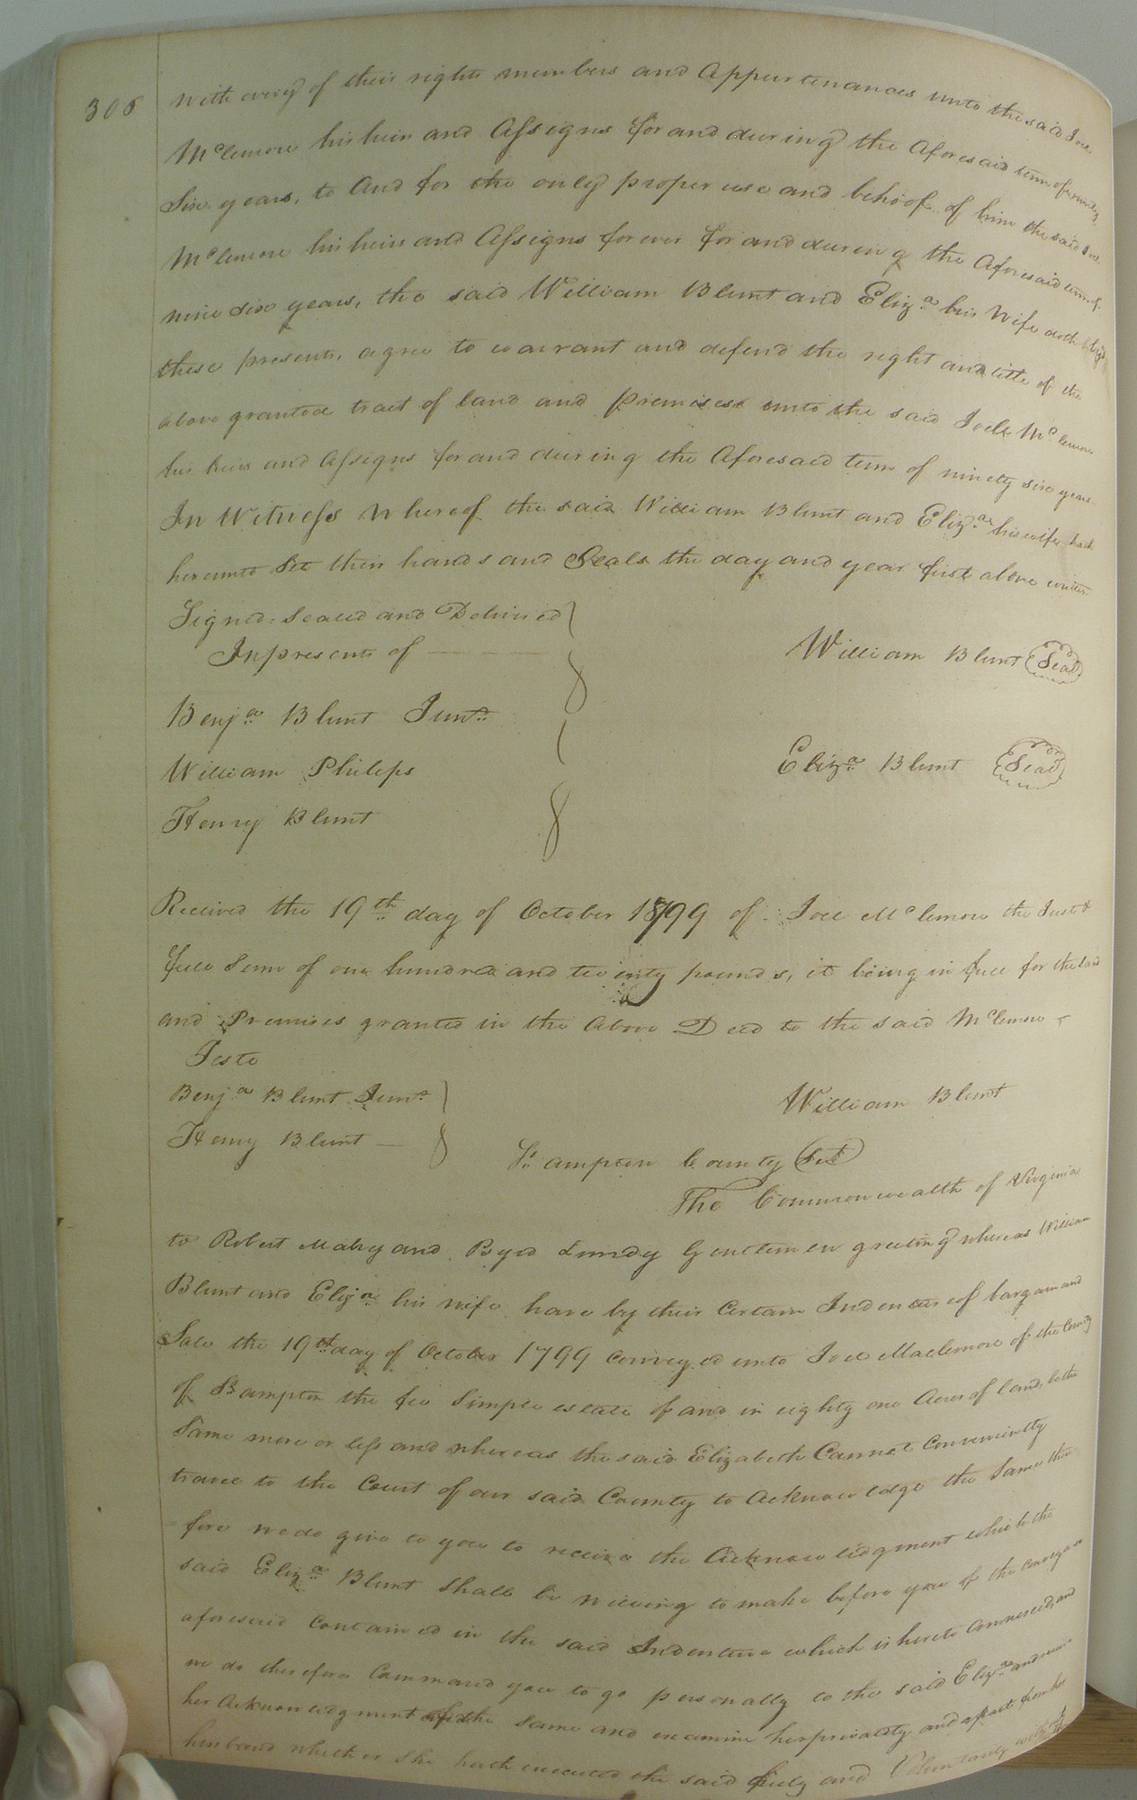 306
with every of their rights members and Appurtenances unto the said Joel
Mclemore his heirs and Assigns for and during the Aforesaid term of ninety
Six years, to And for the only proper use and behoof of him the said Joel
Mclemore his heirs and Assigns forever for and during the Aforesaid term of
nine six years, the said William Blunt and Eliza. his Wife doth by
these presents, agree to warrant and defend the right and title of the
above granted tract of land and premises unto the said Joel Mclemore
his heirs and Assigns for and during the Aforesaid term of ninety six years
In Witness Whereof the said William Blunt and Eliza. his wife hath
hereunto Set their hands and Seals the day and year first above written
Signed, Sealed and Delivered
In presents of
William Blunt (Seal)
Benja. Blunt Junr.
William Philips
Eliza. Blunt (Seal)
Henry Blunt
Received the 19th. day of October 1799 of Joel Mclemore the Just &
full Sum of one hundred and twenty pounds, it being in full for the land
and Premises granted in the Above Deed to the said Mclemore
Teste
Benja. Blunt Junr.
William Blunt
Henry Blunt
So. ampton County Sct
The Commonwealth of Virginia
to Robert Mabry and Byrd Lundy Gentlemen greeting whereas William
Blunt and Eliza. his wife have by their Certain Indenture of bargain and
Sale the 19th day of October 1799 conveyed unto Joel Maclemore of the County
of S.hampton the fee Simple estate of and in eighty one Acres of land, be the
Same more or less and whereas the said Elizabeth Cannot Conveniently
travel to the Court of our said County to Acknowledge the Same there
fore we do give to you to receive the Acknowledgment which the
said Eliza. Blunt Shall be willing to make before you of the conveyance
aforesaid contained in the said Indenture which is hereto annexed, and
we do therefore Command you to go personally to the said Eliza. and receive
her Acknowledgment of the same and examine her privately and apart from her
husband whether she hath executed the said freely and Voluntarily